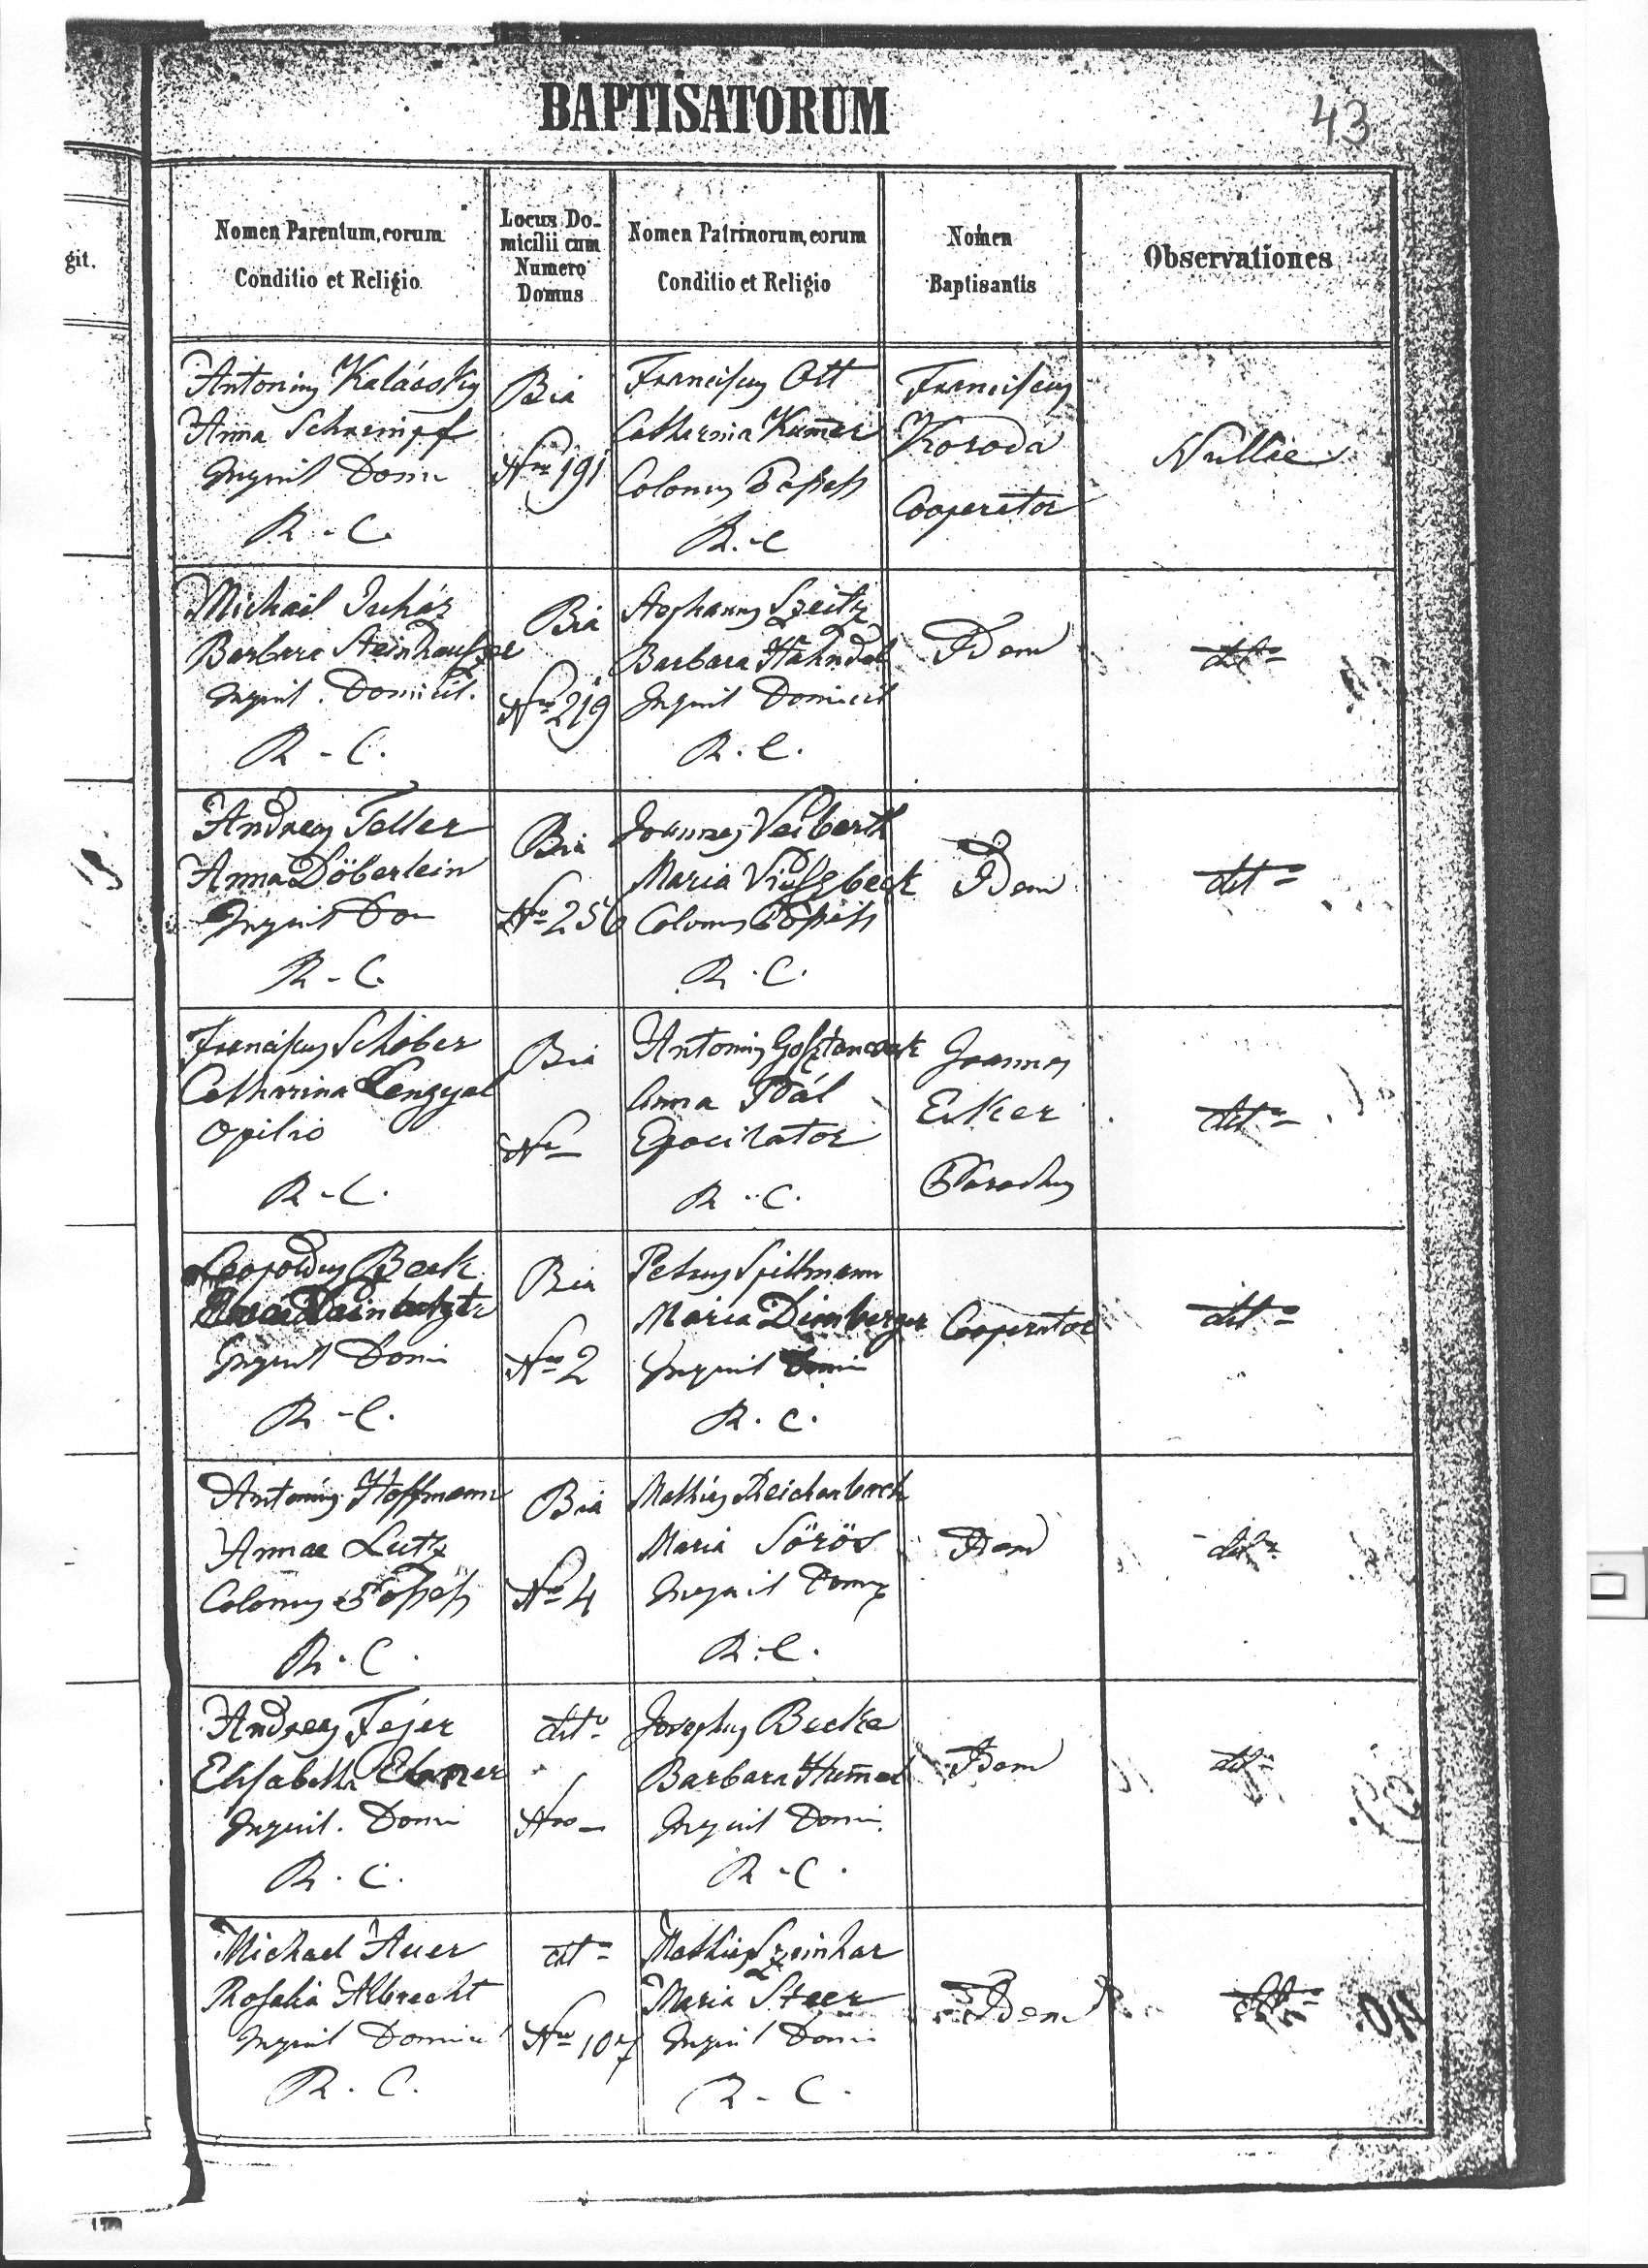 BAPTISATORUM
43
git.
Nomen Parentum, eorum
Conditio et Religio
Locus Do-
micilii cum
Numero
Domus
Nomen Patrinorum, eorum
Conditio et Religio
Nomen
Baptisantis
Observationes
Antonius Kalávsky
Anna Schrempf
Inquil Domi
R. C.
Bia
Nro 191
Franciscus Ott
Catharina Kumer
Colonus
R. C
Franciscus
Koroda
Cooperator
Nullae
Michaël Juhász
Barbara Steinhauszer
Inquil. Domicil.
R. C.
Bia
Nro 219
Stephanus Szeitz
Barbara Hahndel
Inquil Domicil
R. C.
Idem
dto
Andreas Teller
Anna Döberlein
Inquil Do
R. C.
Bia
No 256
Joannes Veiberth
Maria
Colonus
R. C.
Idem
dtto
Franciscus Schober
Catharina Lengyel
Opilio
R. C.
Bia
Nro
Antonius
Anna Pál
Epocilator
R. C.
Joannes
Eiker
Parochus
dtto
Leopoldus Beck
Inquil Domi
R. C.
Bia
Nro 2
Petrus Spillmann
Maria Dimberger
Inquil Domi
R. C.
Cooperator
dtto
Antonius Hoffmann
Annae Lutz
Colonus
R. C.
Bia
No 4
Mathias Reichenbach
Maria Sörös
Inquil Domi
R. C.
Idem
dtto
Andreas Fejer
Elisabetha Ebner
Inquil. Domi
R. C.
dtto
Nro
Josephus Becke
Barbara Humel
Inquil Domi
R. C.
Idem
dtto
Michael Auer
Rosalia Albrecht
Inquil Domi
R. C.
dtto
Nro 107
Mathias Szeinhar
Maria Steer
Inquil Domi
R. C.
Idem
dtto